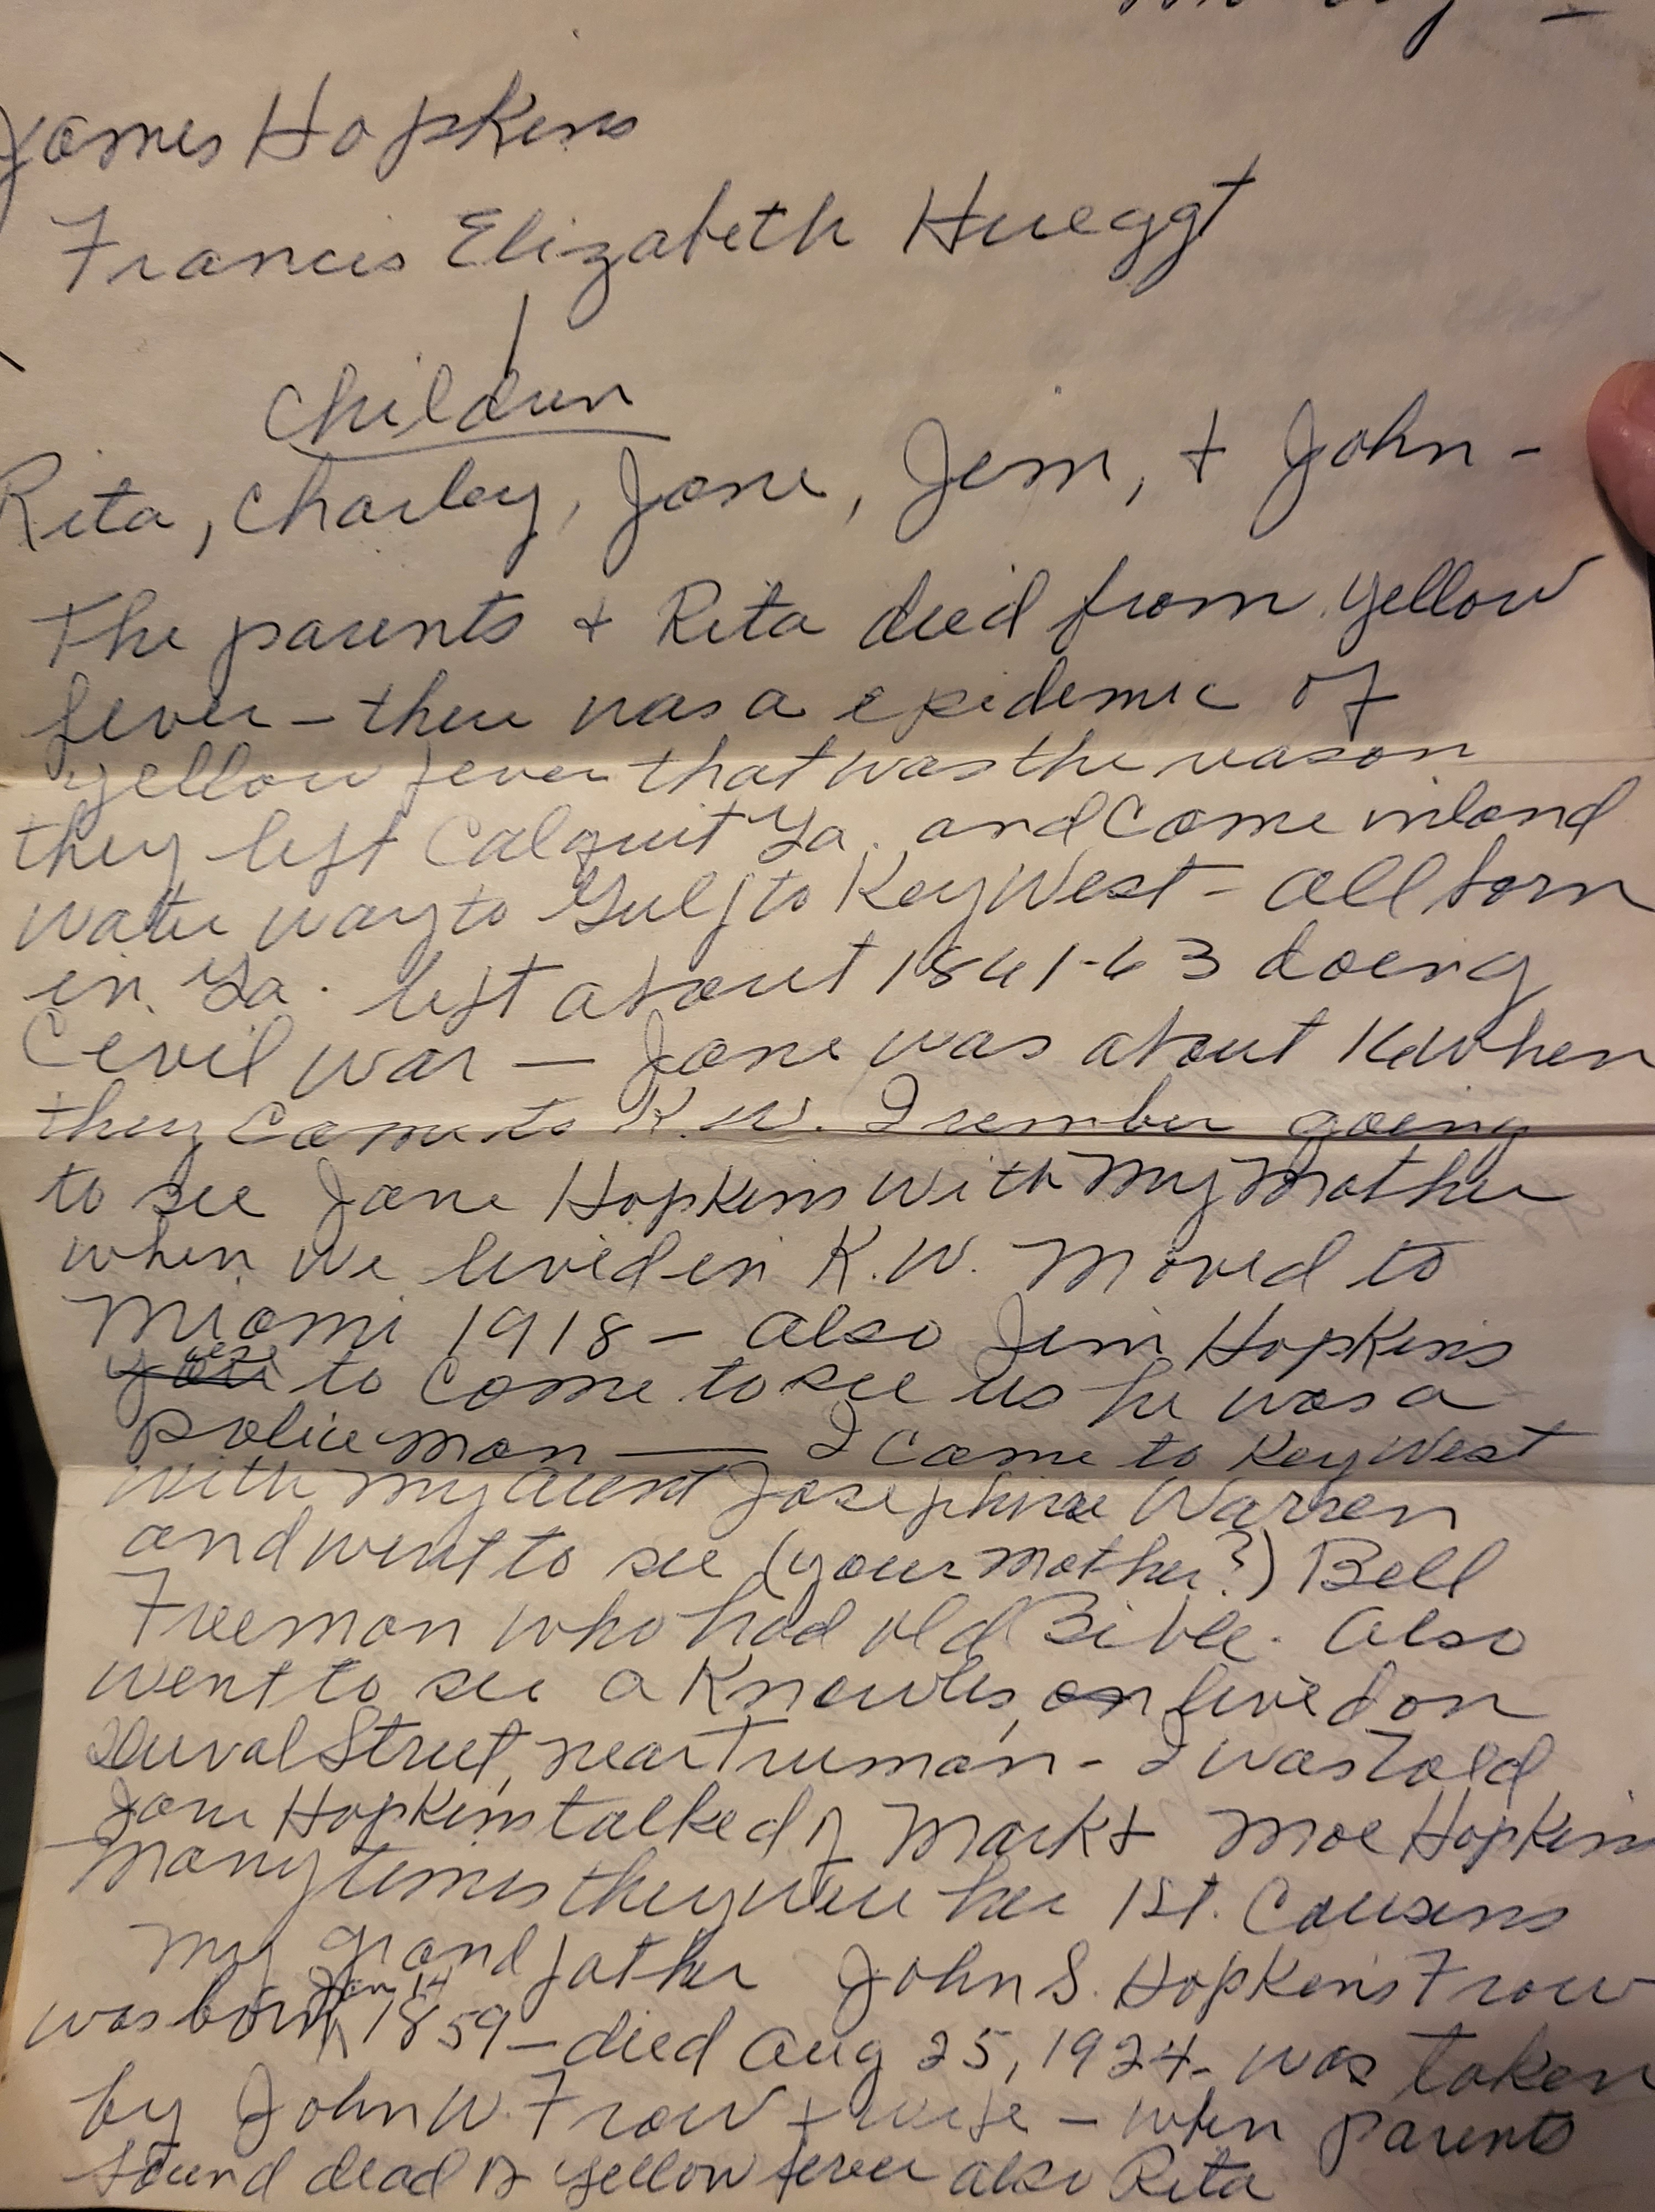 James Hopkins
Francis Elizabeth Hueggt
Children
Rita, Charley, Jane, Jim, + John -
The parents + Rita died from yellow
fever - there was a epidemic of
yellow fever that was the reason
they left Calquit Ga. and Came inland
water way to Gulf to Key West - all born
in Ga. left about 1861-63 doeing
Civil war — Jane was about 16 when
they Came to K.W. I rember going
to see Jane Hopkins with my Mother
when we lived in K.W. Moved to
Miami 1918 - also Jim Hopkins
to Come to see us he was a
policeman — I Came to Key West
with my aunt Josephine Warren
and went to see (your Mother?) Bell
Freeman who had old Bible. Also
went to see a Knowles, lived on
Duval Street, near Truman - I was told
Jane Hopkins talked of Mark + Moe Hopkins
Many times they were her 1st. Cousins
My grandfather John S. Hopkins Frow
was born Jan 14 1859 - died Aug 25, 1924 - was taken
by John W. Frow + wife - when parents
found dead of yellow fever also Rita